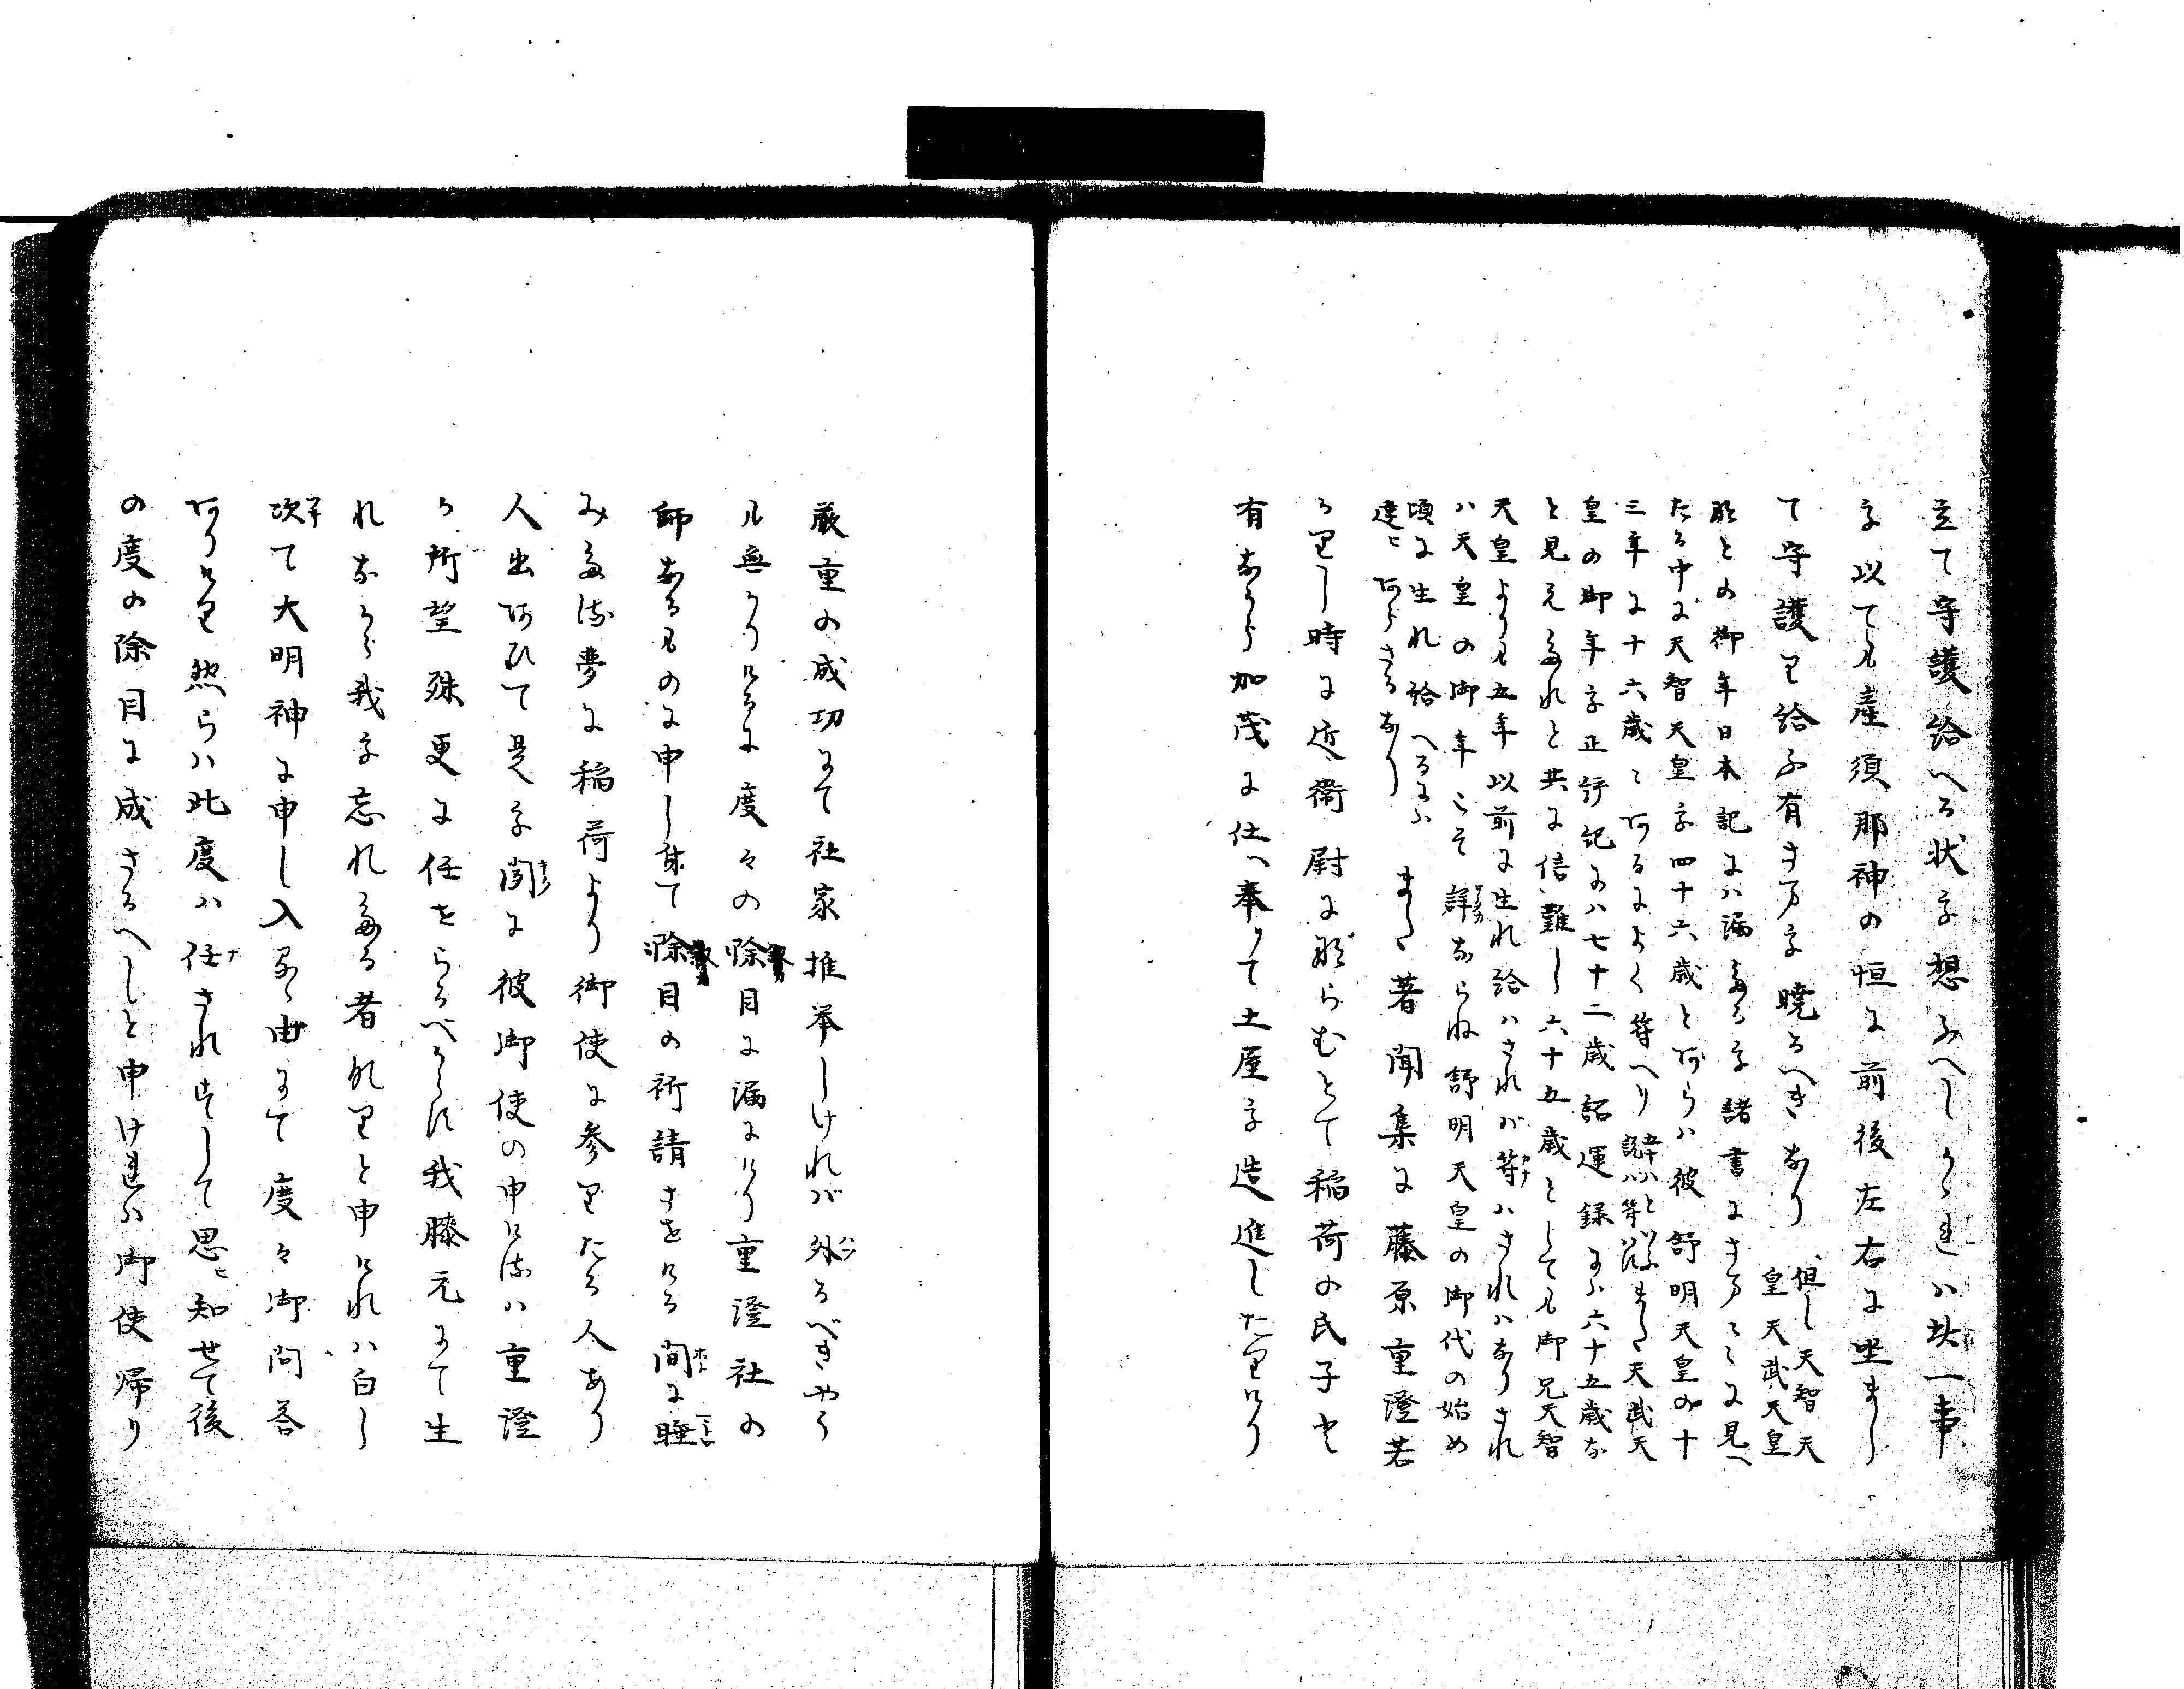 立て守護給へる状を想ふべしかゝれハ此一事
を以ても産須那神の恒に前後左右に坐まし
て守護り給ふ有さまを暁るへきなり 但し天智天
皇天武天皇
那との御年日本記にハ漏たるを諸書にさま〳〵に見へ
たる中に天智天皇を四十六歳と有らハ彼舒明天皇の十
三年に十六歳と有るによく符へりまた天武天
皇の御年を正統記にハ七十二歳詔運録にハ六十五歳な
と見えたれと共に信難し六十五歳としても御兄天智
天皇よりも五年以前に生れ給ハされバ等ハされハなりされ
ハ天皇の御年こそ詳ならね舒明天皇の御代の始め
頃に生れ給へるにハ
違ヒあらさるなり また著聞集に藤原重澄若
かりし時に近衛尉に那らむとて稲荷の氏子にて
有なから加茂に仕へ奉りて土屋を造進したりけり
厳重の成功にて社家推挙しけれバ外るべきやう
も無かりけるに度々の除目に漏にけり重澄社の
師なるものに申し付て除目の祈請させける間ホトに睡
みたる夢に稲荷より御使に参りたる人あり
人出あひて是を聞キクに彼御使の申けるハ重澄
か所望殊更に任せらるべからす我膝元にて生
れなから我を忘れたる者なりと申けれハ白し
次て大明神に申し入るゝ由にて度々御問答
ありけり然らハ此度ハ任ナされすして思ヒ知せて後
の度の除目に成さるへしと申けれハ御使帰り